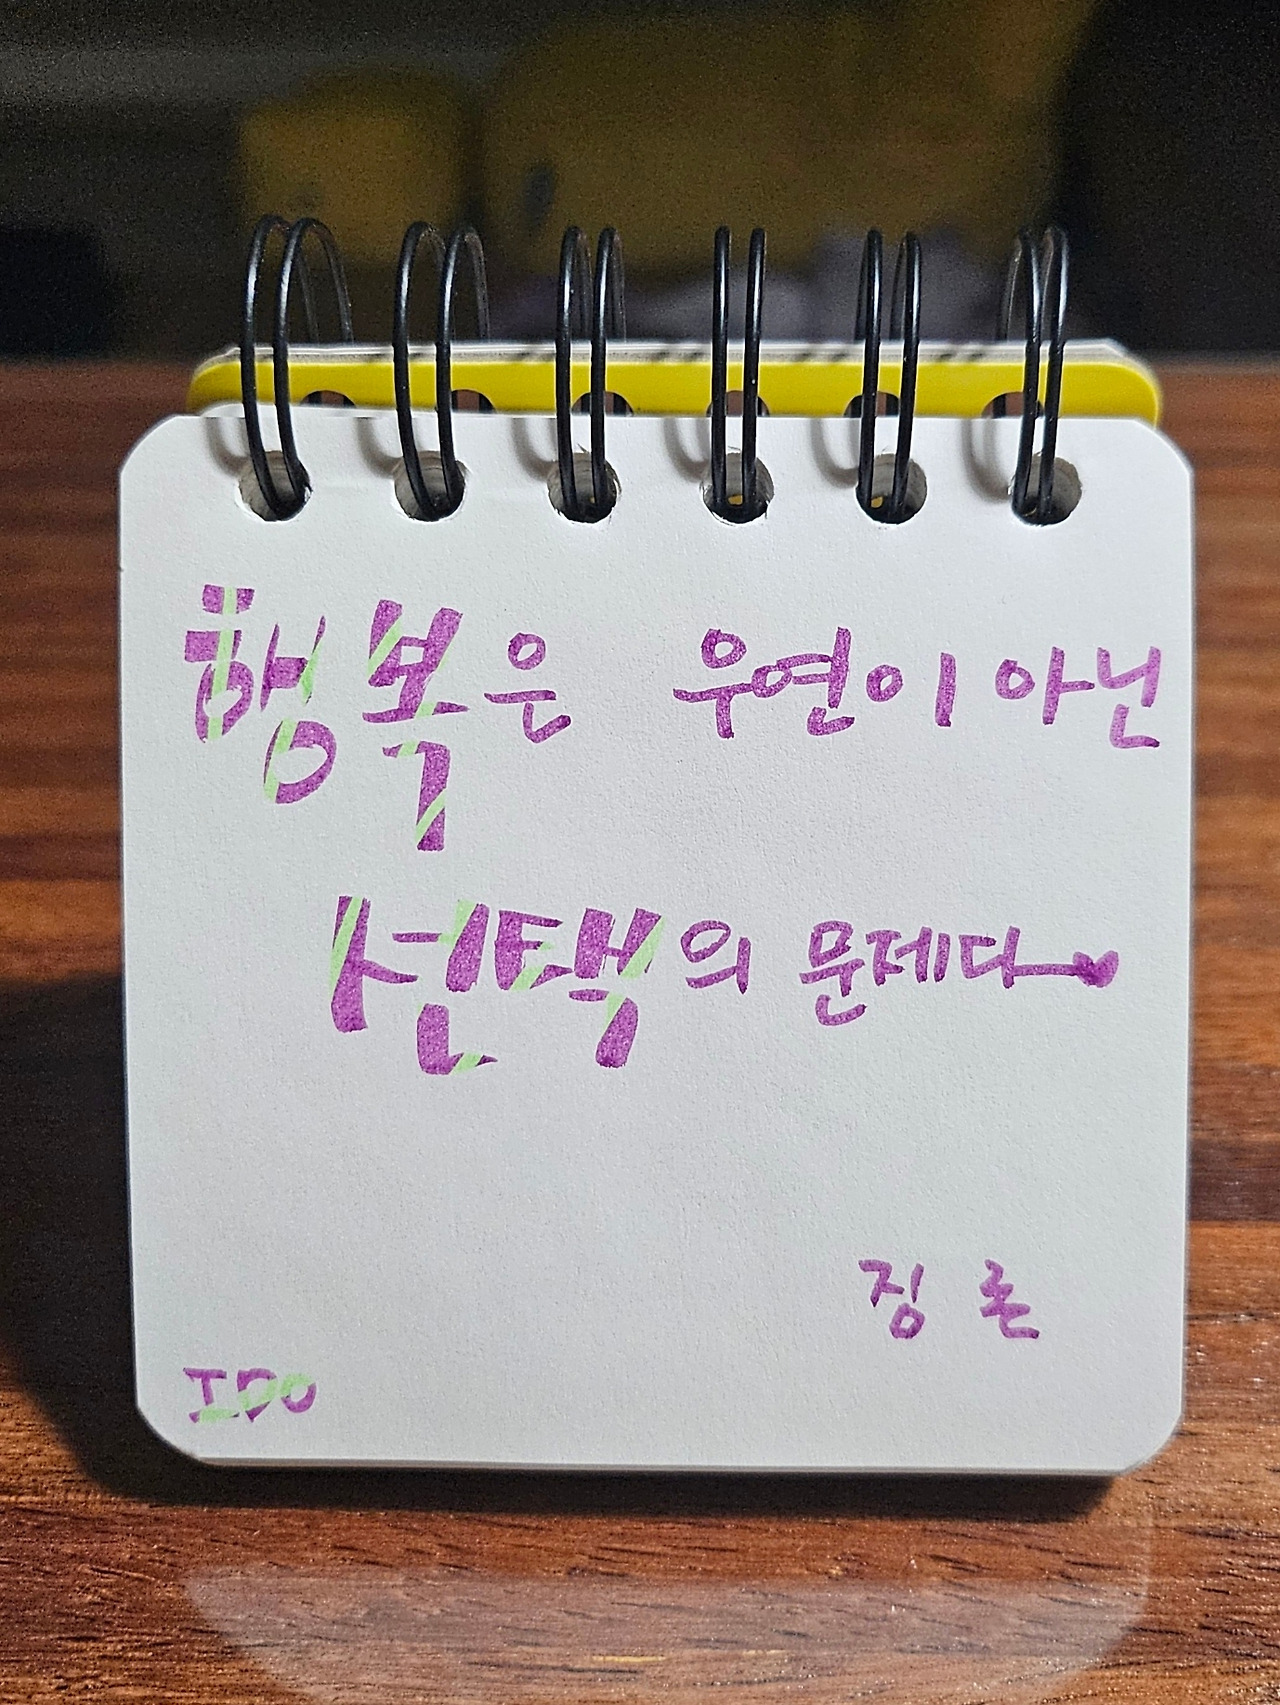 행복은 우연이 아닌
선택의 문제다
짐 론
IDO